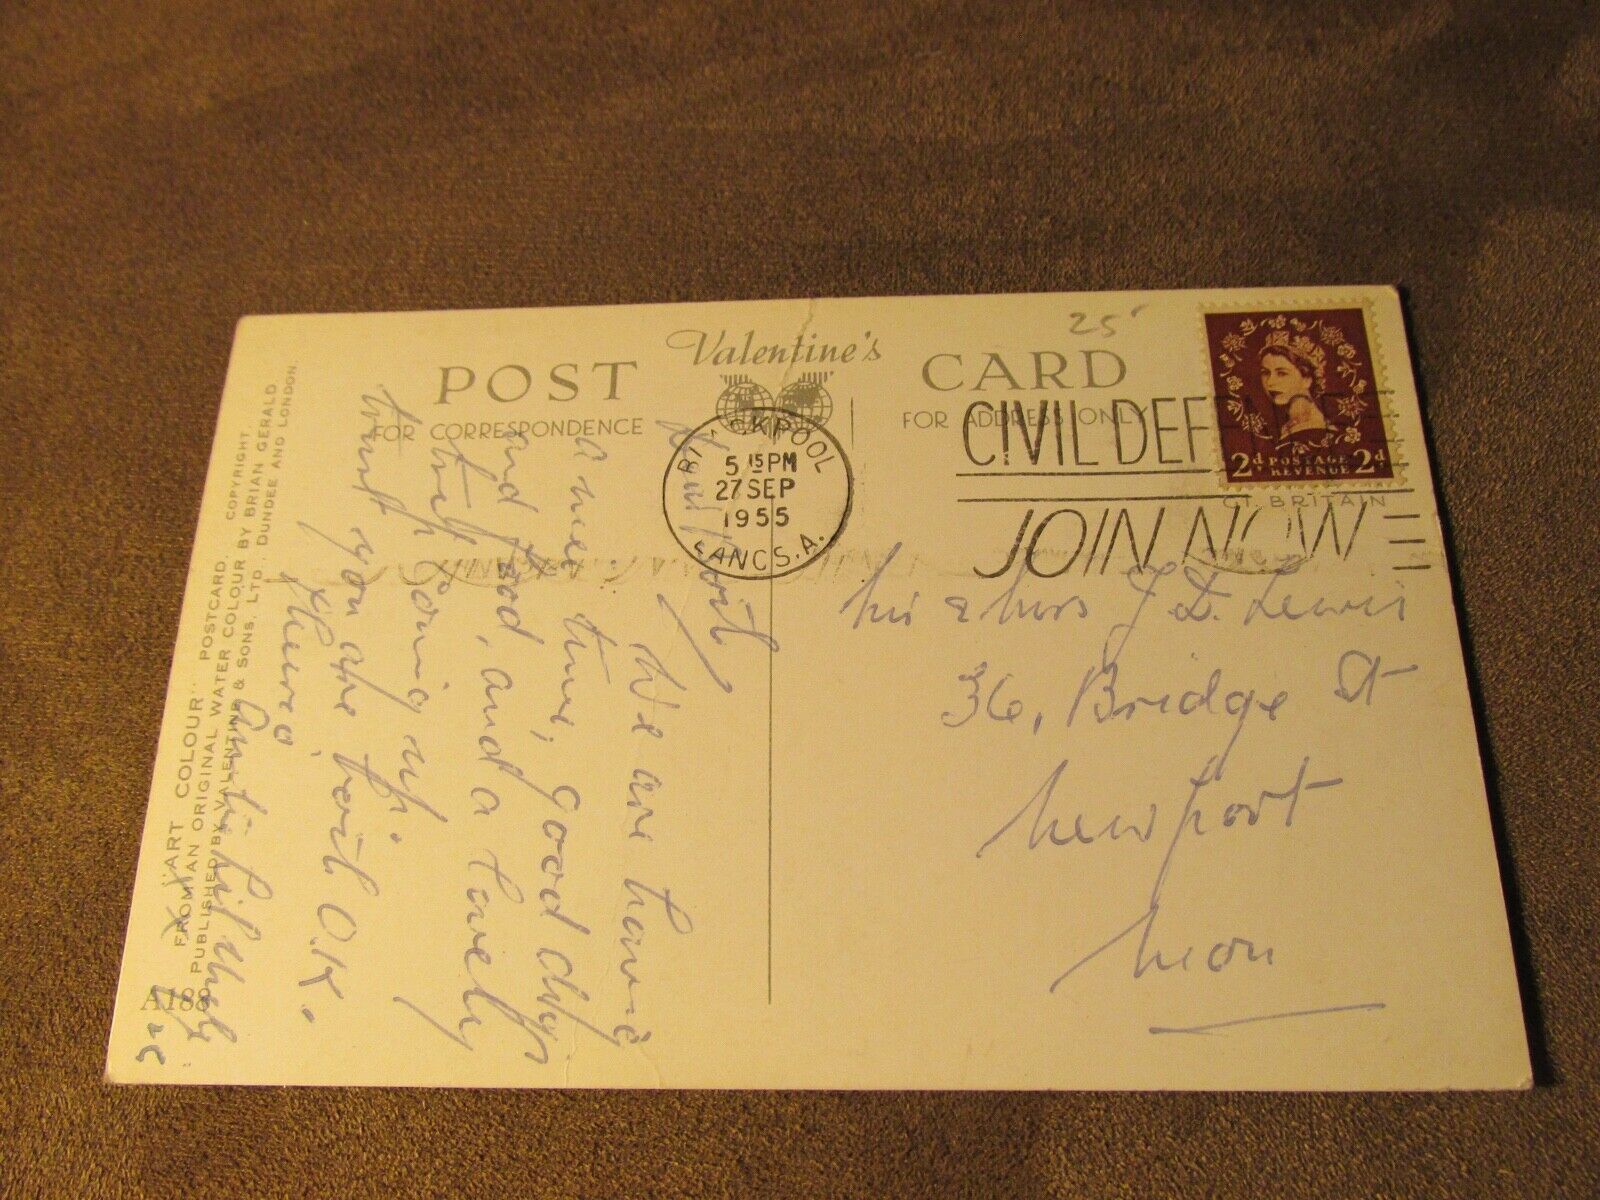 Valentine's
POST CARD
FOR CORRESPONDENCE
FOR ADDRESS ONLY
25
BLACKPOOL
5 15 PM
27 SEP
1955
LANCS. A.
CIVIL DEF
JOIN NOW
2d POSTAGE REVENUE 2d
GT. BRITAIN
We are having
a nice time, good digs
and food, and a lovely
going up.
trust you are both O.K.
& Mrs J. D. Lewis
36, Bridge St
Newport
Mon
"ART COLOUR" POSTCARD. COPYRIGHT.
FROM AN ORIGINAL WATER COLOUR BY BRIAN GERALD.
PUBLISHED BY VALENTINE & SONS, LTD. DUNDEE AND LONDON.
A188